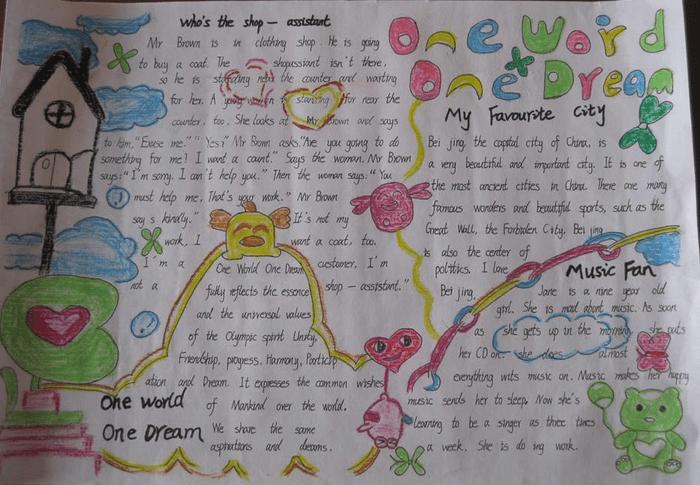 Who's the shop - assistant
Mr Brown is in clothing shop. He is going
to buy a coat. The shopassiant isn't there,
so he is standing near the counter and waiting
for her. A young woman is standing far near the
counter, too. She looks at Mr Brown and says
to him, "Excuse me." "Yes?" Mr Brown asks. "Are you going to do
something for me? I want a count." Says the woman. Mr Brown
says: "I'm sorry. I can't help you." Then the woman says: "You
must help me. That's your work." Mr Brown
say s kindly." It's not my
work, I want a coat, too.
I'm a customer, I'm
not a shop - assistant."
One World One Dream
fully reflects the essence
and the universal values
of the Olympic spirit Unity,
Friendship, progress, Harmony, Particip
ation and Dream. It expresses the common wishes
of Mankind over the world.
We share the same
aspirations and dreams.
One World
One Dream
One Word
One Dream
My Favourite City
Bei jing, the capital city of China, is
a very beautiful and important city. It is one of
the most ancient cities in China. There are many
famous wonders and beautiful sports, such as the
Great Wall, the Forbiden City, Bei jing
is also the center of
politics. I love
Bei jing.
Music Fan
Jane is a nine year old
girl. She is mad about music. As soon
as she gets up in the morning, she puts
her CD on. she does almost
everything wits music on. Music makes her happy
music sends her to sleep. Now she's
learning to be a singer as three times
a week. She is do ing work.